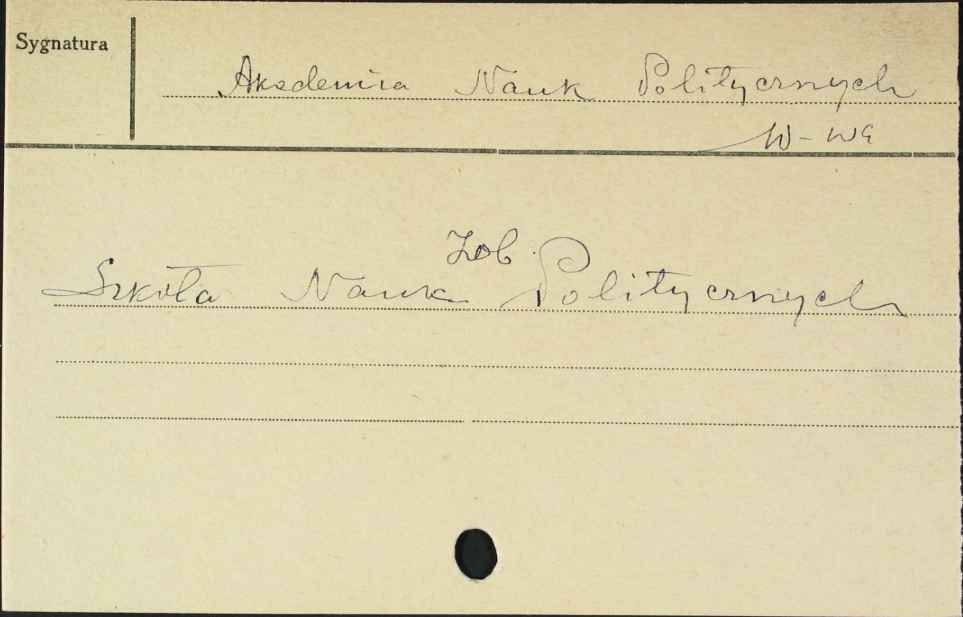 Sygnatura
Akademia Nauk Politycznych
W-wa
Zob.
Szkoła Nauk Politycznych